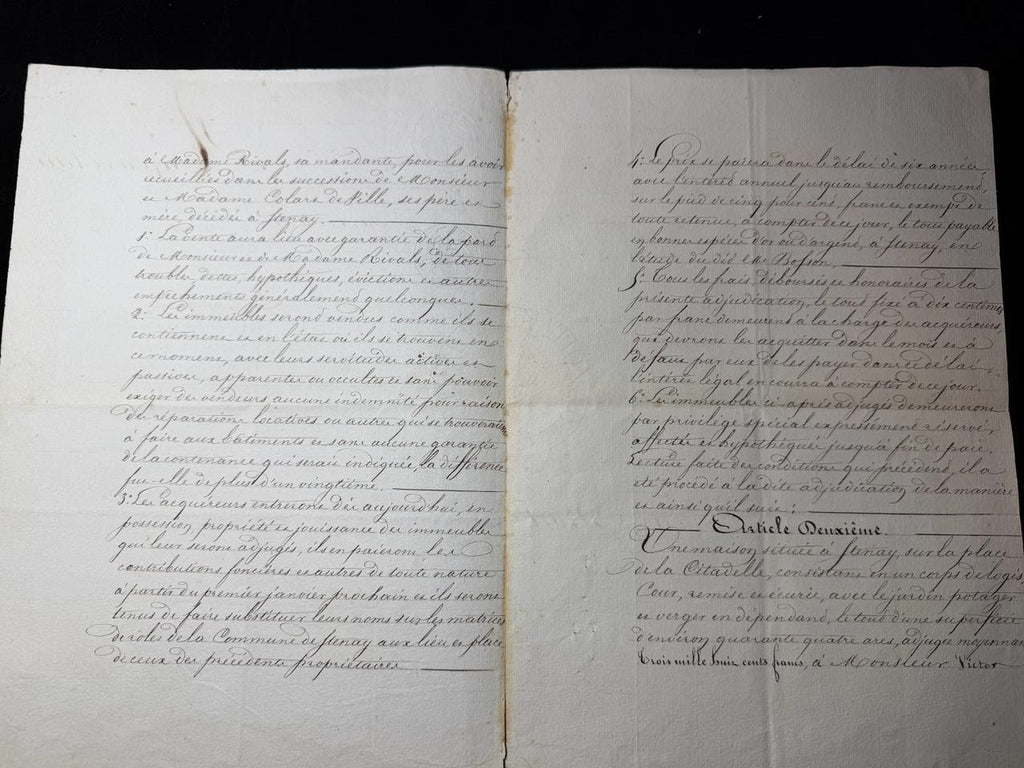 à Madame Rivals, sa mandante, pour les avoir
recueillis dans les successions de Monsieur
et Madame Colart de Ville, ses père et
mère, décédés à Stenay.
1° La vente aura lieu avec garantie de la part
de Monsieur et de Madame Rivals, de tous
troubles, dettes, hypothèques, évictions et autres
empêchements généralement quelconques.
2° Les immeubles seront vendus comme ils se
contiennent et en l'état où ils se trouvent en
ce moment, avec leurs servitudes actives et
passives, apparentes ou occultes et sans pouvoir
exiger des vendeurs aucune indemnité pour raison
de réparations locatives ou autres qui se trouveraient
à faire aux bâtiments et sans aucune garantie
de la contenance qui serait indiquée, la différence
fut-elle de plus d'un vingtième.
3° Les acquéreurs entreront dès aujourd'hui, en
possession propriété et jouissance des immeubles
qui leur seront adjugés, ils en paieront les
contributions foncières et autres de toute nature
à partir du premier janvier prochain et ils seront
tenus de faire substituer leurs noms sur les matrices
de rôles de la Commune de Stenay aux lieu et place
de ceux des précédents propriétaires
4° Le prix se paiera dans le délai de six années
avec l'intérêt annuel jusqu'au remboursement,
sur le pied de cinq pour cent, franc et exempt de
toute retenue, à compter de ce jour, le tout payable
en bonnes espèces d'or ou d'argent, à Stenay, en
l'étude du dit Me Bosson.
5° Tous les frais, déboursés et honoraires de la
présente adjudication, le tout fixé à dix centimes
par franc demeurent à la charge des acquéreurs,
qui devront les acquitter dans le mois et à
défaut par eux de les payer dans ce délai,
l'intérêt légal en courra à compter de ce jour.
6° Les immeubles ci-après adjugés demeureront
par privilège spécial expressément réservés
affectés et hypothéqués jusqu'à fin de paie.
Lecture faite des conditions qui précèdent, il a
été procédé à la dite adjudication de la manière
et ainsi qu'il suit:
Article Deuxième.
Une maison située à Stenay, sur la place
de la Citadelle, consistant en un corps de logis
Cour, remise et écurie, avec le jardin potager
et verger en dépendant, le tout d'une superficie
d'environ quarante quatre ares, adjugée moyennant
Trois mille huit cents francs, à Monsieur Victor